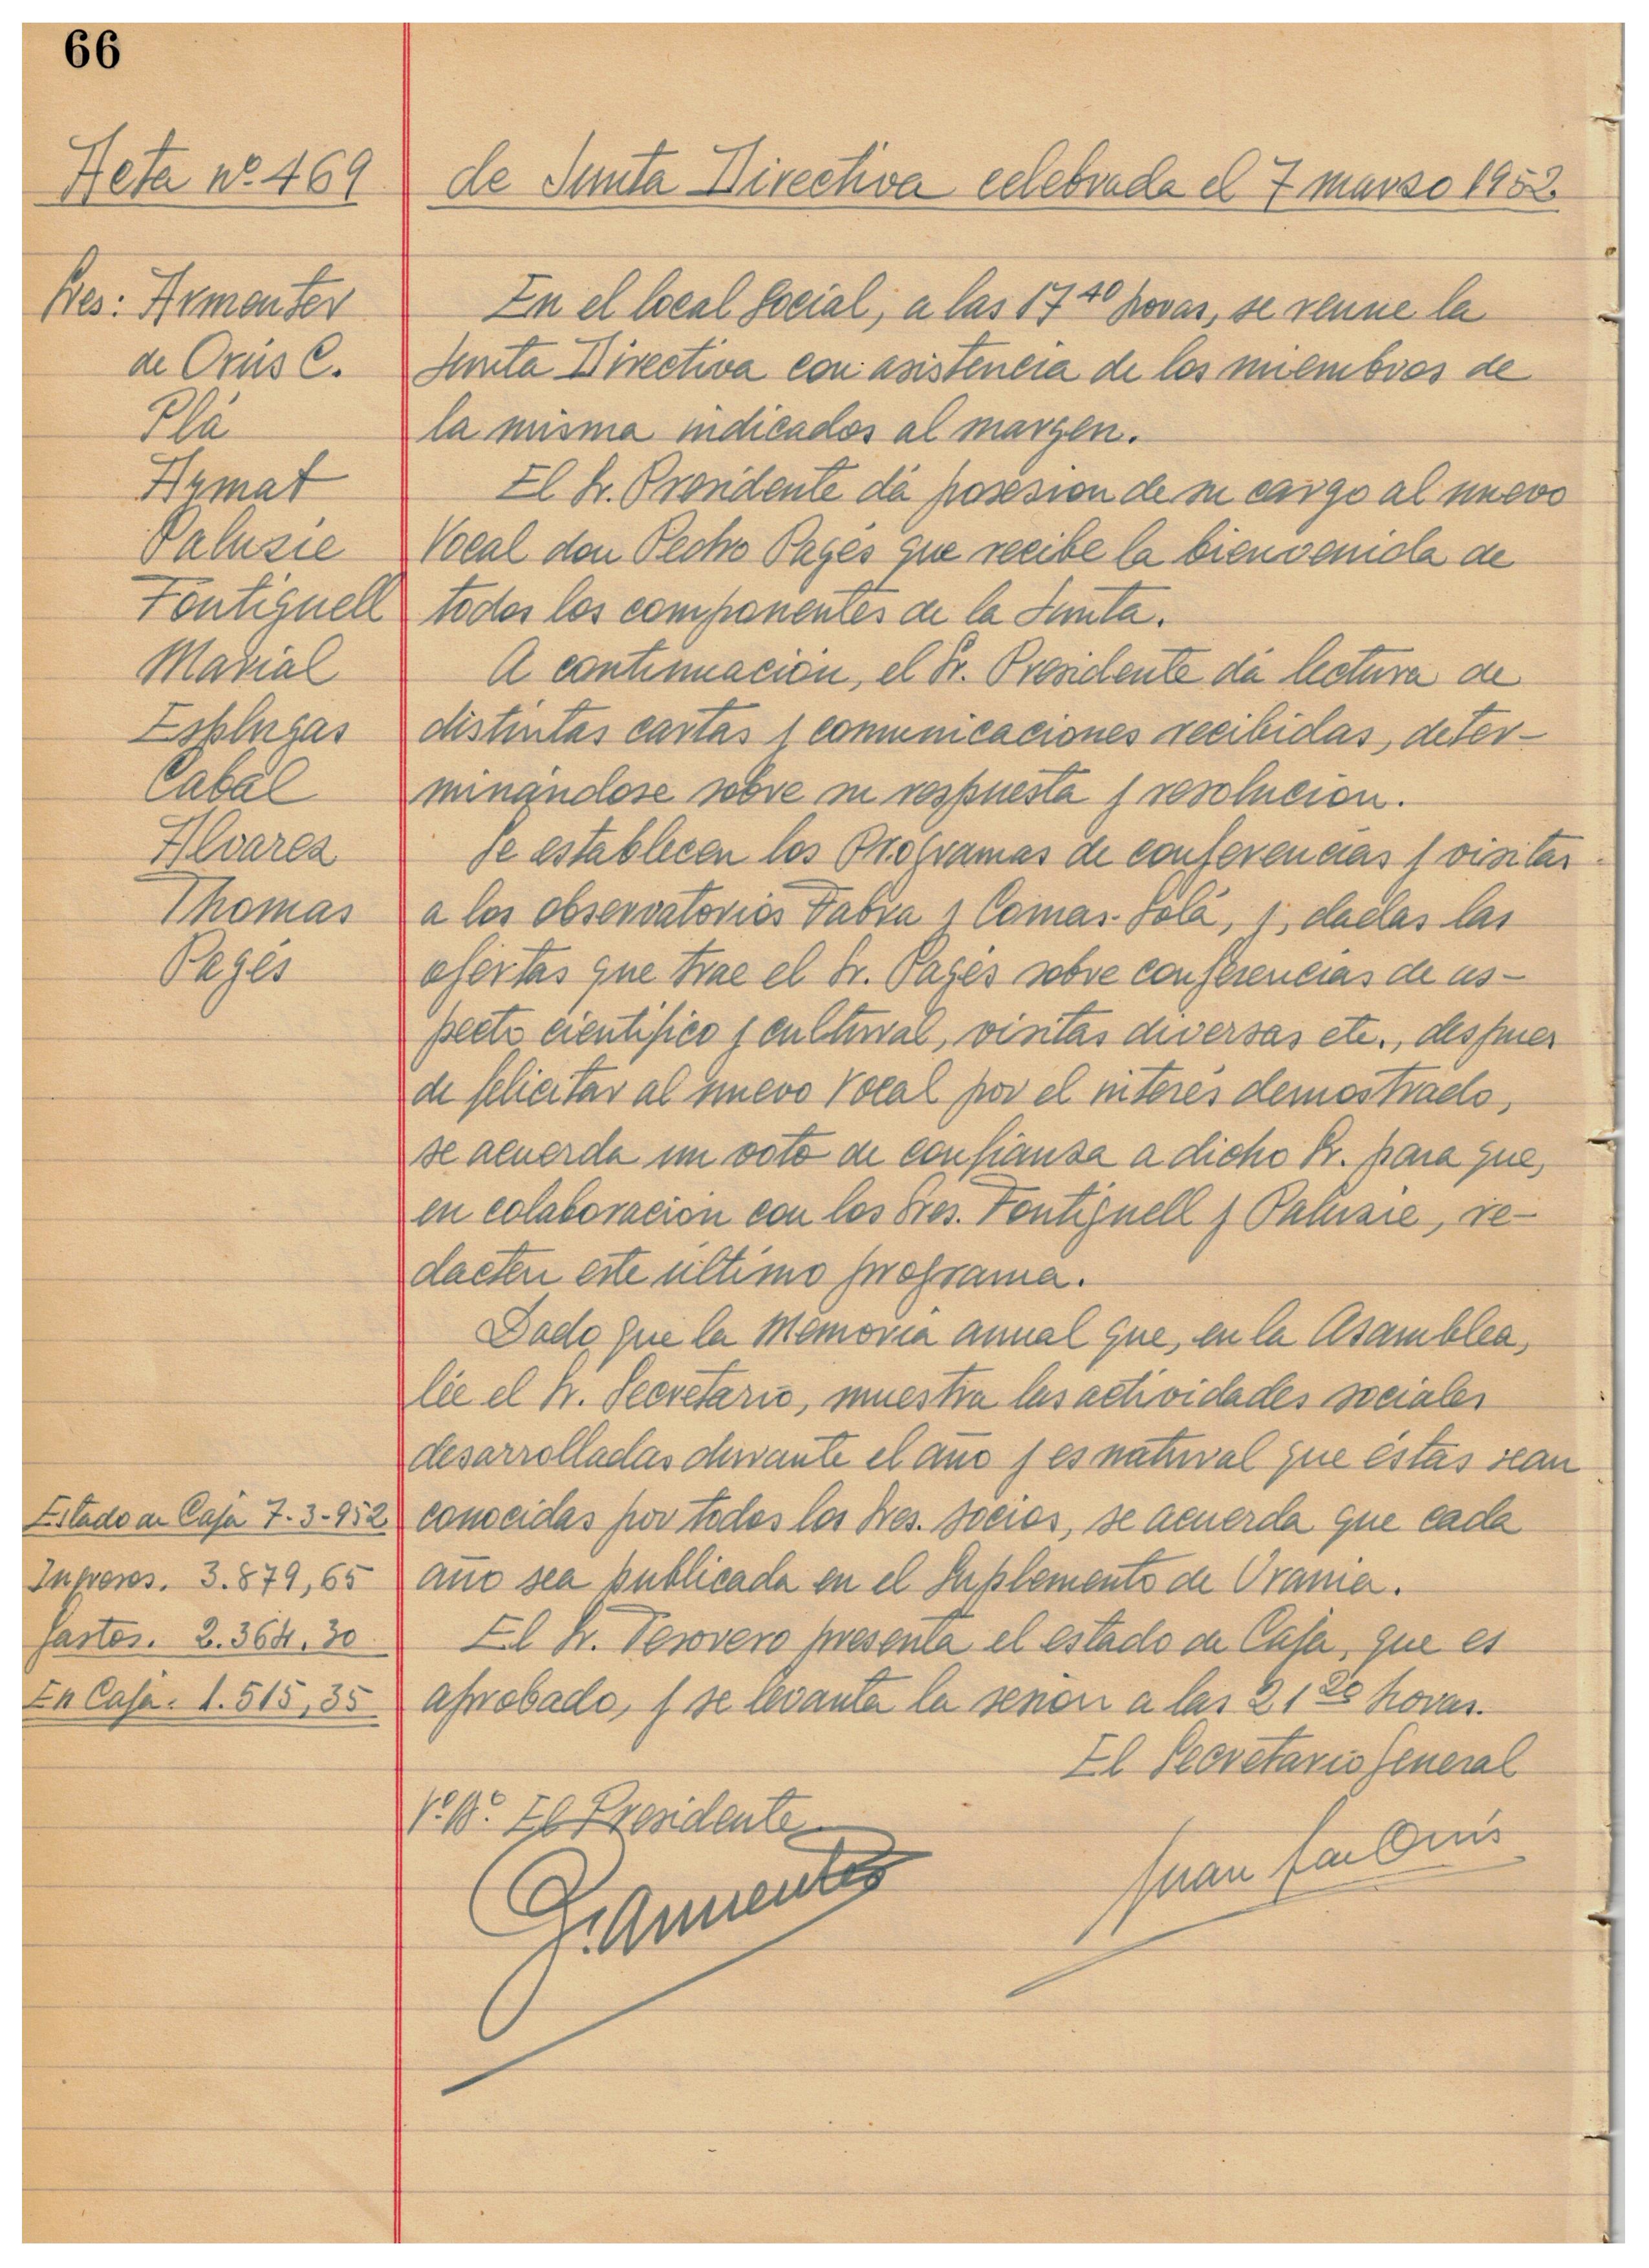 66
Acta nº 469
de Junta Directiva celebrada el 7 marzo 1952.
Sres: Armenter
de Orús C.
Plá
Aymat
Palusie
Fontiguell
Marial
Esplugas
Cabal
Alvarez
Thomas
Pagés
En el local social, a las 17 40 horas, se reune la
Junta Directiva con asistencia de los miembros de
la misma indicados al margen.
El Sr. Presidente dá posesion de su cargo al nuevo
Vocal don Pedro Pagés que recibe la bienvenida de
todos los componentes de la Junta.
A continuación, el Sr. Presidente dá lectura de
distintas cartas y comunicaciones recibidas, deter-
minándose sobre su respuesta y resolucion.
Se establecen los Programas de conferencias y visitas
a los observatorios Fabra y Comas Solá, y, dadas las
ofertas que trae el Sr. Pagés sobre conferencias de as-
pecto cientifico y cultural, visitas diversas etc., despues
de felicitar al nuevo Vocal por el interés demostrado,
se acuerda un voto de confianza a dicho Sr. para que,
en colaboración con los Sres. Fontiguell y Palusie, re-
dacten este último programa.
Dado que la Memoria anual que, en la Asamblea,
lée el Sr. Secretario, muestra las actividades sociales
desarrolladas durante el año y es natural que éstas sean
conocidas por todos los Sres. socios, se acuerda que cada
año sea publicada en el Suplemento de Urania.
El Sr. Tesorero presenta el estado de Caja, que es
aprobado, y se levanta la sesion a las 21 20 horas.
Estado de Caja 7-3-952
Ingresos. 3.879,65
Gastos. 2.364,30
En Caja. 1.515,35
El Secretario General
Vº Bº El Presidente
J. Armenter
Juan de Orús